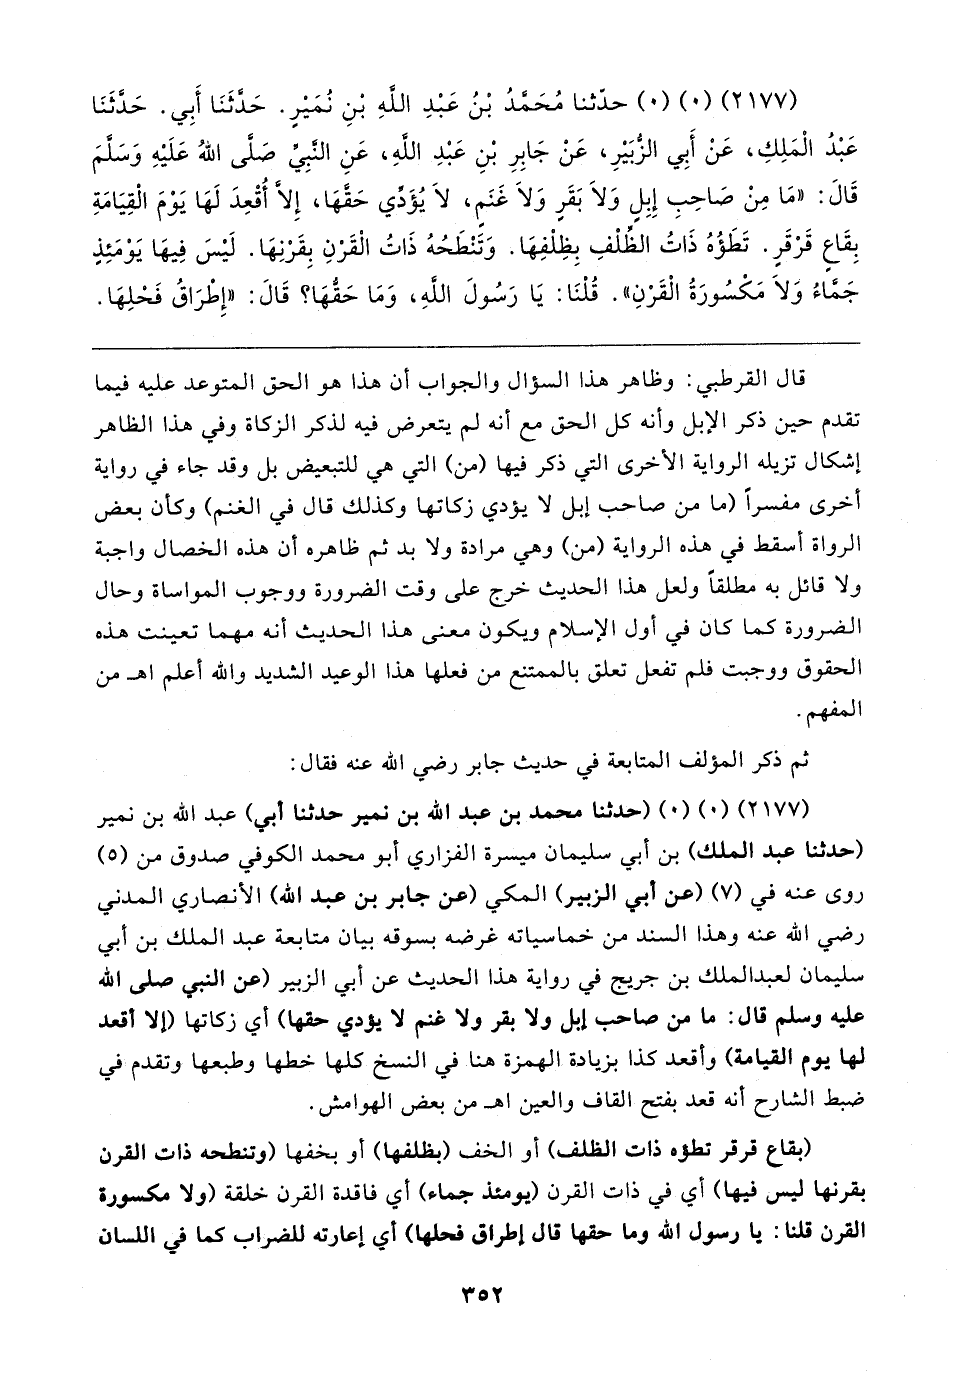 (٢١٧٧) (٠) (٠) حدّثنا مُحَمَّدُ بْنُ عَبْدِ اللَّهِ بْنِ نُمَيْرٍ. حَدَّثَنَا أَبِي. حَدَّثَنَا
عَبْدُ الْمَلِكِ، عَنْ أَبِي الزُّبَيْرِ، عَنْ جَابِرِ بْنِ عَبْدِ اللَّهِ، عَنِ النَّبِيِّ صَلَّى اللهُ عَلَيْهِ وَسَلَّمَ
قَالَ: «مَا مِنْ صَاحِبِ إِبِلٍ وَلاَ بَقَرٍ وَلاَ غَنَمٍ، لاَ يُؤَدِّي حَقَّهَا، إِلاَّ أُقْعِدَ لَهَا يَوْمَ الْقِيَامَةِ
بِقَاعٍ قَرْقَرٍ. تَطَؤُهُ ذَاتُ الظِّلْفِ بِظِلْفِهَا. وَتَنْطَحُهُ ذَاتُ الْقَرْنِ بِقَرْنِهَا. لَيْسَ فِيهَا يَوْمَئِذٍ
جَمَّاءُ وَلاَ مَكْسُورَةُ الْقَرْنِ». قُلْنَا: يَا رَسُولَ اللَّهِ، وَمَا حَقُّهَا؟ قَالَ: «إِطْرَاقُ فَحْلِهَا.
قال القرطبي: وظاهر هذا السؤال والجواب أن هذا هو الحق المتوعد عليه فيما
تقدم حين ذكر الإبل وأنه كل الحق مع أنه لم يتعرض فيه لذكر الزكاة وفي هذا الظاهر
إشكال تزيله الرواية الأخرى التي ذكر فيها (من) التي هي للتبعيض بل وقد جاء في رواية
أخرى مفسراً (ما من صاحب إبل لا يؤدي زكاتها وكذلك قال في الغنم) وكأن بعض
الرواة أسقط في هذه الرواية (من) وهي مرادة ولا بد ثم ظاهره أن هذه الخصال واجبة
ولا قائل به مطلقاً ولعل هذا الحديث خرج على وقت الضرورة ووجوب المواساة وحال
الضرورة كما كان في أول الإسلام ويكون معنى هذا الحديث أنه مهما تعينت هذه
الحقوق ووجبت فلم تفعل تعلق بالممتنع من فعلها هذا الوعيد الشديد والله أعلم اهـ من
المفهم.
ثم ذكر المؤلف المتابعة في حديث جابر رضي الله عنه فقال:
(٢١٧٧) (٠) (٠) (حدثنا محمد بن عبد الله بن نمير حدثنا أبي) عبد الله بن نمير
(حدثنا عبد الملك) بن أبي سليمان ميسرة الفزاري أبو محمد الكوفي صدوق من (٥)
روى عنه في (٧) (عن أبي الزبير) المكي (عن جابر بن عبد الله) الأنصاري المدني
رضي الله عنه وهذا السند من خماسياته غرضه بسوقه بيان متابعة عبد الملك بن أبي
سليمان لعبدالملك بن جريج في رواية هذا الحديث عن أبي الزبير (عن النبي صلى الله
عليه وسلم قال: ما من صاحب إبل ولا بقر ولا غنم لا يؤدي حقها) أي زكاتها (إلا أقعد
لها يوم القيامة) وأقعد كذا بزيادة الهمزة هنا في النسخ كلها خطها وطبعها وتقدم في
ضبط الشارح أنه قعد بفتح القاف والعين اهـ من بعض الهوامش.
(بقاع قرقر تطؤه ذات الظلف) أو الخف (بظلفها) أو بخفها (وتنطحه ذات القرن
بقرنها ليس فيها) أي في ذات القرن (يومئذ جماء) أي فاقدة القرن خلقة (ولا مكسورة
القرن قلنا: يا رسول الله وما حقها قال إطراق فحلها) أي إعارته للضراب كما في اللسان
٣٥٢